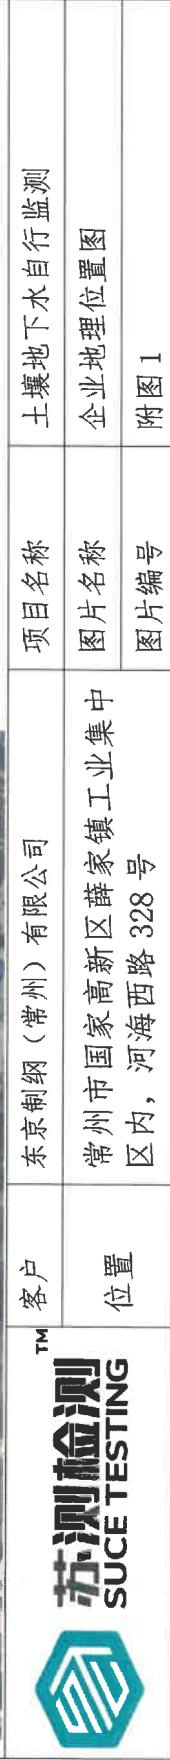 苏测检测 TM
SUCE TESTING
客户
东京制纲（常州）有限公司
项目名称
土壤地下水自行监测
位置
常州市国家高新区薛家镇工业集中
区内，河海西路 328 号
图片名称
企业地理位置图
图片编号
附图 1